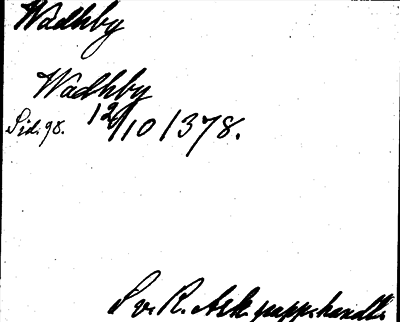 Wadhby
Wadhby
Sid. 98. 12/10 1378.
Sv. R. Ark. pappershandl.